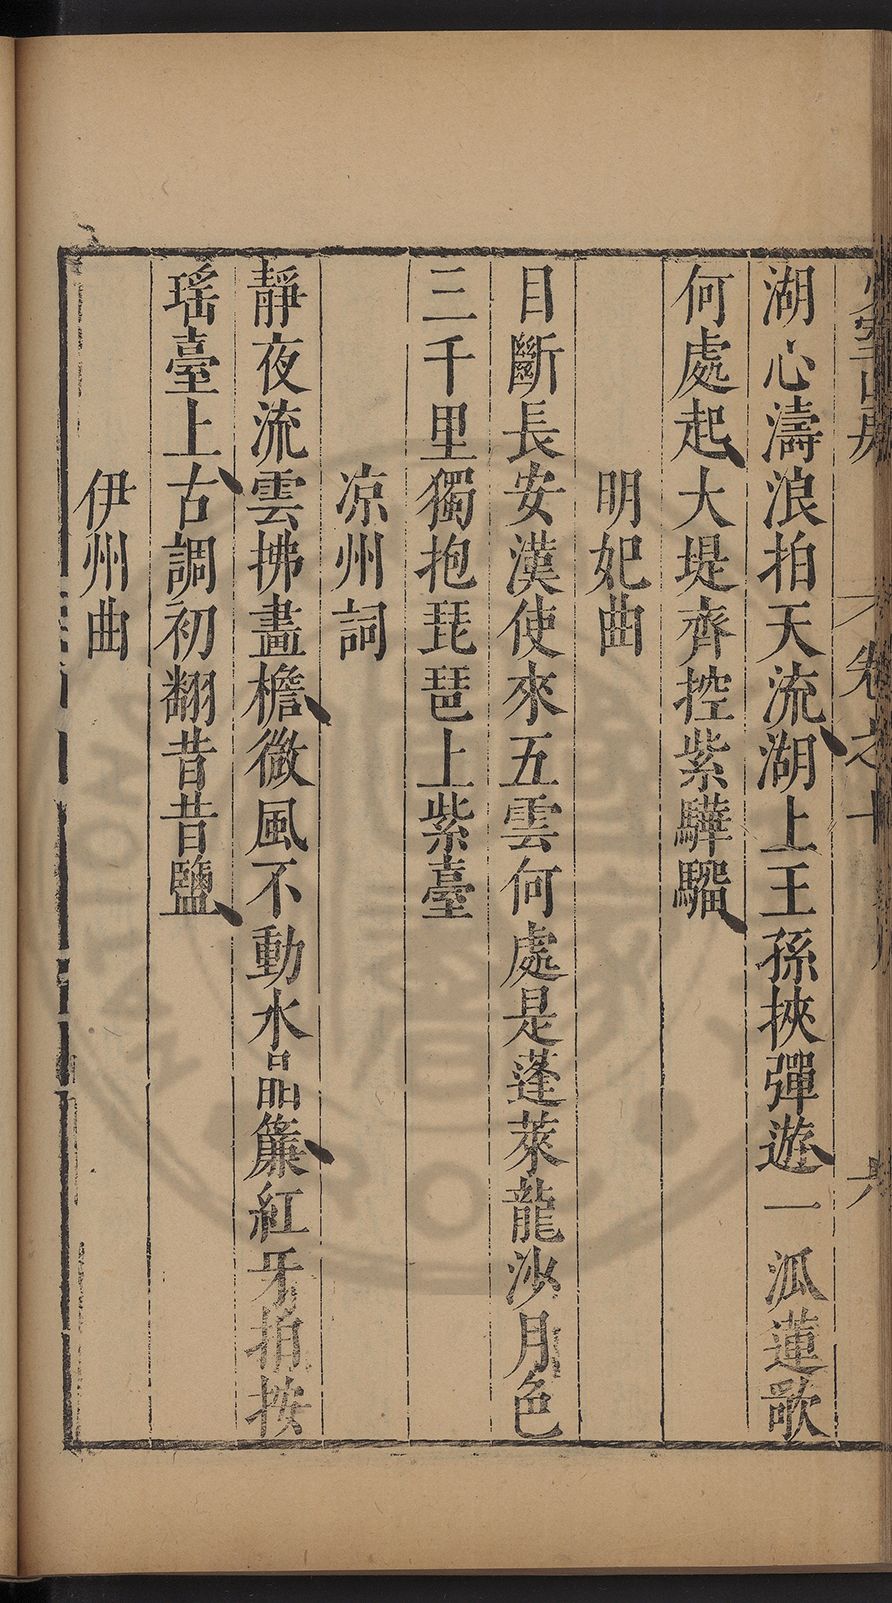 湖心濤浪拍天流湖上王孫挾彈遊一泒蓮歌
何處起大堤齊控紫驊騮
明妃曲
目斷長安漢使來五雲何處是蓬萊龍沙月色
三千里獨抱琵琶上紫臺
凉州詞
靜夜流雲拂畫檐微風不動水晶簾紅牙拍按
瑤臺上古調初翻昔昔鹽
伊州曲
卷之十